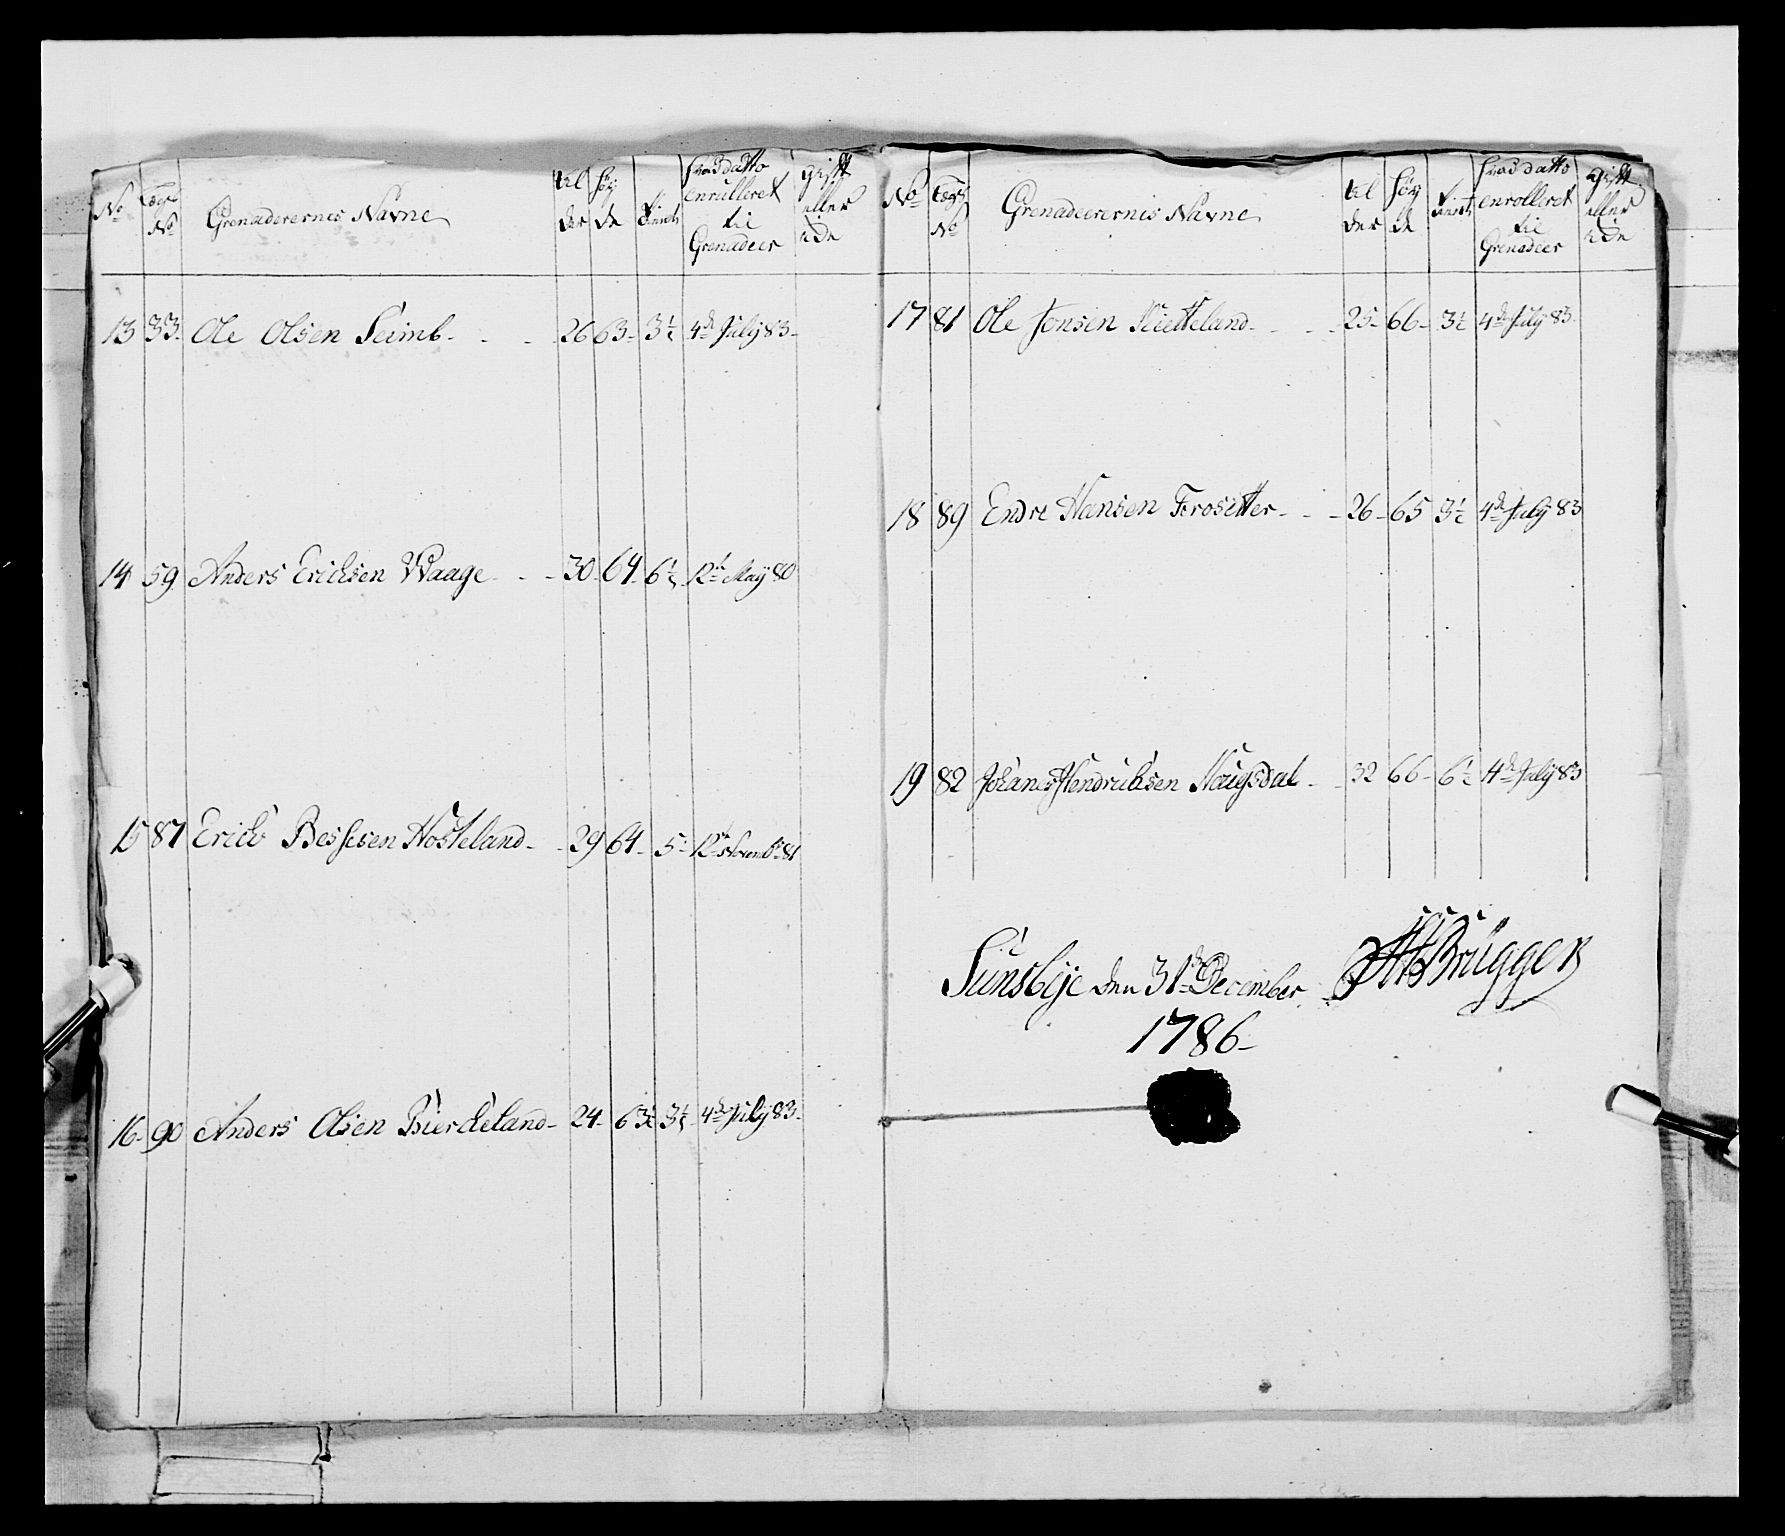 No
Lægs No
Grenaderernes Navne
al der
høy de
Tiennt
hvad datto enrulleret til Grenadeer
gift eller ide
13 33 Ole Olsen Seimb 26 63 3½ 4de July 83
14 59 Anders Erichsen Waage 30 64 6½ 12te May 80
15 87 Erich Bessesen Hosteland 29 64 5 12te Novembr 81
16 90 Anders Olsen Bierckeland 24 63½ 3½ 4de July 83
No
Lægs No
Grenadeerernis Navne
al der
høy de
Tiennt
hvad datto enrolleret til Grenadeer
gift eller ide
17 81 Ole Jonsen Kietteland 25 66 3½ 4de July 83
18 89 Endre Hansen Frosetter 26 65 3½ 4de July 83
19 82 Johanes Hendrichsen Haugsdal 32 66 6½ 4de July 83
Sunsbye den 31de December Brüggen
1786